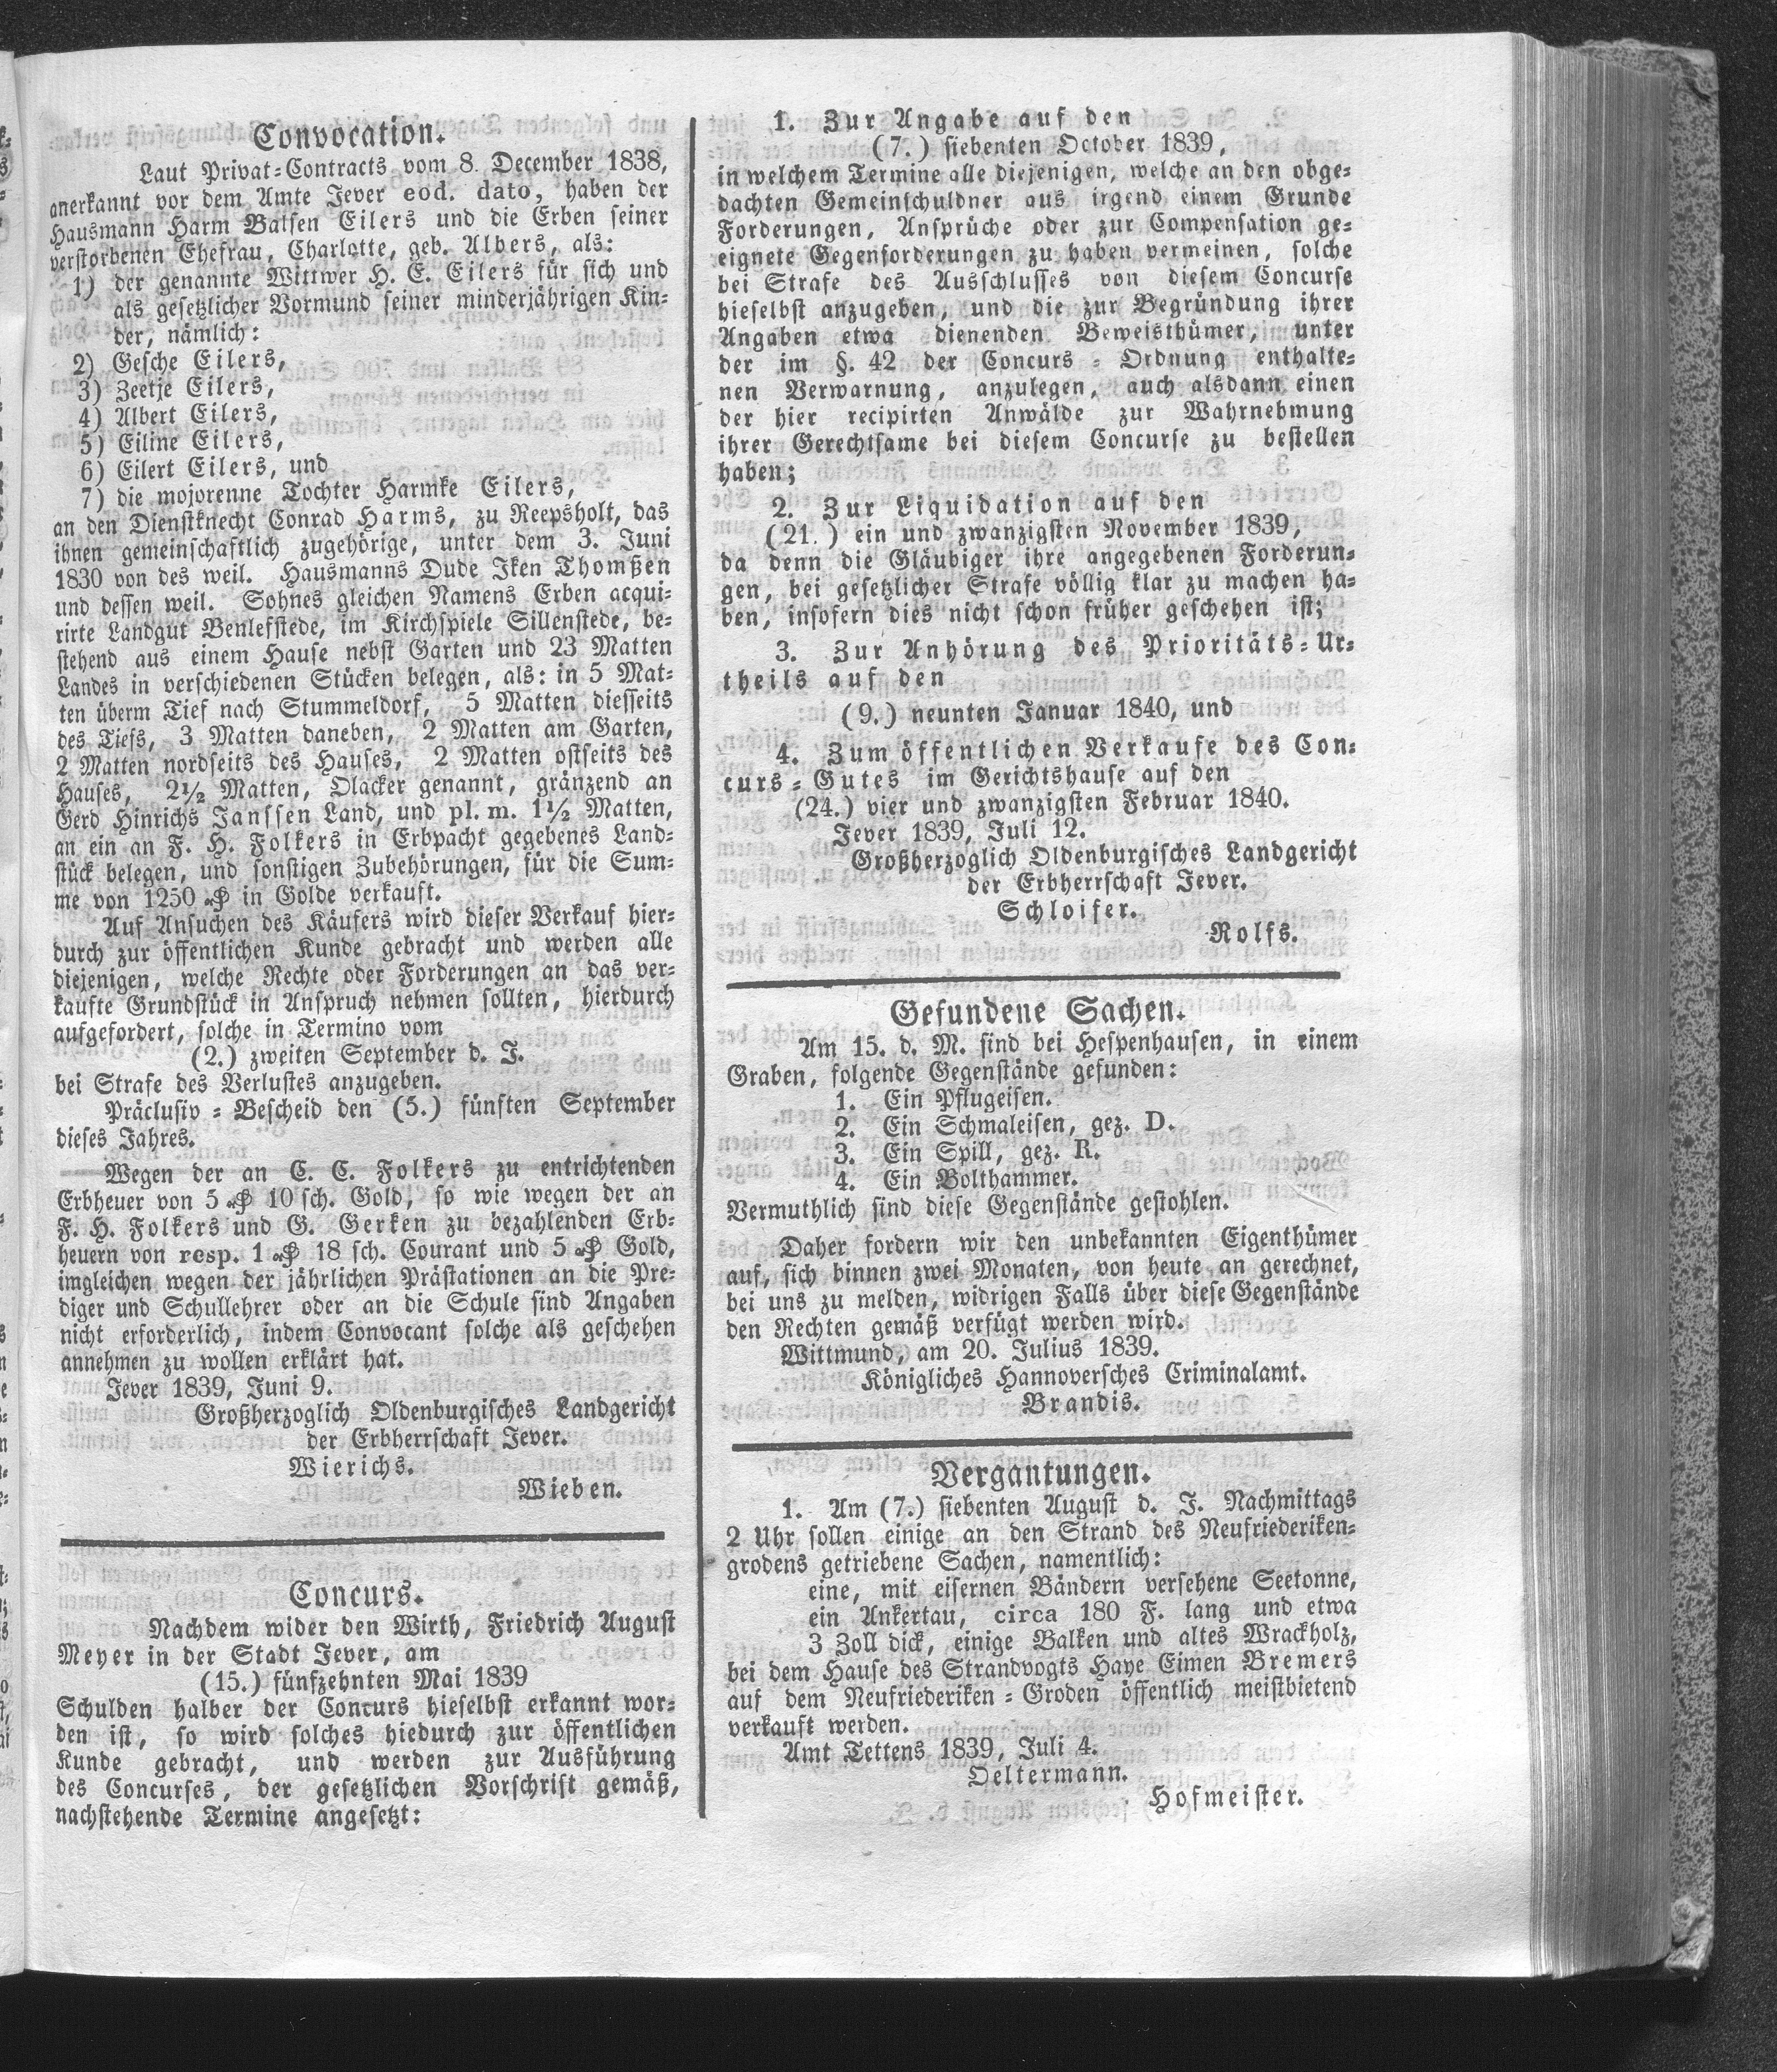 Convocation.
Laut Privat-Contracts vom 8. December 1838,
anerkannt vor dem Amte Jever eod. dato, haben der
Hausmann Harm Balsen Eilers und die Erben seiner
verstorbenen Ehefrau, Charlotte, geb. Albers, als:
1) der genannte Wittwer H. E. Eilers für sich und
als gesetzlicher Vormund seiner minderjährigen Kin-
der, nämlich:
2) Gesche Eilers,
3) Zeetje Eilers,
4) Albert Eilers,
5) Eiline Eilers,
6) Eilert Eilers, und
7) die mojorenne Tochter Harmke Eilers,
an den Dienstknecht Conrad Harms, zu Reepsholt, das
ihnen gemeinschaftlich zugehörige, unter dem 3. Juni
1830 von des weil. Hausmanns Dude Iken Thomßen
und dessen weil. Sohnes gleichen Namens Erben acqui-
rirte Landgut Benlefstede, im Kirchspiele Sillenstede, be-
stehend aus einem Hause nebst Garten und 23 Matten
Landes in verschiedenen Stücken belegen, als: in 5 Mat-
ten überm Tief nach Stummeldorf, 5 Matten diesseits
des Tiefs, 3 Matten daneben, 2 Matten am Garten,
2 Matten nordseits des Hauses, 2 Matten ostseits des
Hauses, 2½ Matten, Olacker genannt, gränzend an
Gerd Hinrichs Janssen Land, und pl. m. 1½ Matten,
an ein an F. H. Folkers in Erbpacht gegebenes Land-
stück belegen, und sonstigen Zubehörungen, für die Sum-
me von 1250 ₰ in Golde verkauft.
Auf Ansuchen des Käufers wird dieser Verkauf hier-
durch zur öffentlichen Kunde gebracht und werden alle
diejenigen, welche Rechte oder Forderungen an das ver-
kaufte Grundstück in Anspruch nehmen sollten, hierdurch
aufgefordert, solche in Termino vom
(2.) zweiten September d. J.
bei Strafe des Verlustes anzugeben.
Präclusiv-Bescheid den (5.) fünften September
dieses Jahres.
Wegen der an C. C. Folkers zu entrichtenden
Erbheuer von 5 ₰ 10 sch. Gold, so wie wegen der an
F. H. Folkers und G. Gerken zu bezahlenden Erb-
heuern von resp. 1 ₰ 18 sch. Courant und 5 ₰ Gold,
imgleichen wegen der jährlichen Prästationen an die Pre-
diger und Schullehrer oder an die Schule sind Angaben
nicht erforderlich, indem Convocant solche als geschehen
annehmen zu wollen erklärt hat.
Jever 1839, Juni 9.
Großherzoglich Oldenburgisches Landgericht
der Erbherrschaft Jever.
Wierichs.
Wieben.
Concurs.
Nachdem wider den Wirth, Friedrich August
Meyer in der Stadt Jever, am
(15.) fünfzehnten Mai 1839
Schulden halber der Concurs hieselbst erkannt wor-
den ist, so wird solches hiedurch zur öffentlichen
Kunde gebracht, und werden zur Ausführung
des Concurses, der gesetzlichen Vorschrift gemäß,
nachstehende Termine angesetzt:
1. Zur Angabe auf den
(7.) siebenten October 1839,
in welchem Termine alle diejenigen, welche an den obge-
dachten Gemeinschuldner aus irgend einem Grunde
Forderungen, Ansprüche oder zur Compensation ge-
eignete Gegenforderungen zu haben vermeinen, solche
bei Strafe des Ausschlusses von diesem Concurse
hieselbst anzugeben, und die zur Begründung ihrer
Angaben etwa dienenden Beweisthümer, unter
der im §. 42 der Concurs-Ordnung enthalte-
nen Verwarnung, anzulegen, auch alsdann einen
der hier recipirten Anwälde zur Wahrnehmung
ihrer Gerechtsame bei diesem Concurse zu bestellen
haben;
2. Zur Liquidation auf den
(21.) ein und zwanzigsten November 1839,
da denn die Gläubiger ihre angegebenen Forderun-
gen, bei gesetzlicher Strafe völlig klar zu machen ha-
ben, insofern dies nicht schon früher geschehen ist;
3. Zur Anhörung des Prioritäts-Ur-
theils auf den
(9.) neunten Januar 1840, und
4. Zum öffentlichen Verkaufe des Con-
curs-Gutes im Gerichtshause auf den
(24.) vier und zwanzigsten Februar 1840.
Jever 1839, Juli 12.
Großherzoglich Oldenburgisches Landgericht
der Erbherrschaft Jever.
Schloifer.
Rolfs.
Gefundene Sachen.
Am 15. d. M. sind bei Hespenhausen, in einem
Graben, folgende Gegenstände gefunden:
1. Ein Pflugeisen.
2. Ein Schmaleisen, gez. D.
3. Ein Spill, gez. R.
4. Ein Bolthammer.
Vermuthlich sind diese Gegenstände gestohlen.
Daher fordern wir den unbekannten Eigenthümer
auf, sich binnen zwei Monaten, von heute an gerechnet,
bei uns zu melden, widrigen Falls über diese Gegenstände
den Rechten gemäß verfügt werden wird.
Wittmund, am 20. Julius 1839.
Königliches Hannoversches Criminalamt.
Brandis.
Vergantungen.
1. Am (7.) siebenten August d. J. Nachmittags
2 Uhr sollen einige an den Strand des Neufriederiken-
grodens getriebene Sachen, namentlich:
eine, mit eisernen Bändern versehene Seetonne,
ein Ankertau, circa 180 F. lang und etwa
3 Zoll dick, einige Balken und altes Wrackholz,
bei dem Hause des Strandvogts Haye Eimen Bremers
auf dem Neufriederiken-Groden öffentlich meistbietend
verkauft werden.
Amt Tettens 1839, Juli 4.
Oeltermann.
Hofmeister.